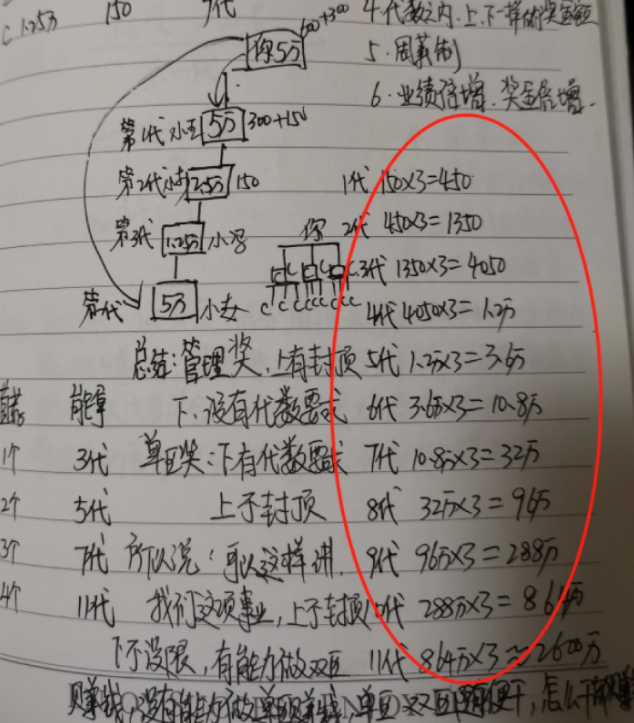 C 1.25万 150 7代 4.代数之内.上.下一样的奖金额
600+300
你5万 5.周薪制
6.业绩倍增.奖金倍增.
第1代小王 5万 300+150
第2代小李 2.5万 150 1代 150×3=450
第3代 1.25万 小冯 你 2代 450×3=1350
C C C 3代 1350×3=4050
第代 5万 小女 C C C C C C C 4代 4050×3=1.2万
总结:管理奖.上有封顶 5代 1.2万×3=3.6万
能拿 下.没有代数要求 6代 3.6万×3=10.8万
1个 3代 单区奖:下有代数要求 7代 10.8万×3=32万
2个 5代 上不封顶 8代 32万×3=96万
3个 7代 所以说:可以这样讲. 9代 96万×3=288万
4个 11代 我们这项事业,上不封顶 10代 288万×3=864万
下不设限,有能力做双区 11代 864万×3≈2600万
赚钱,没有能力做单区赚钱,单区双区随便干,怎么干都赚